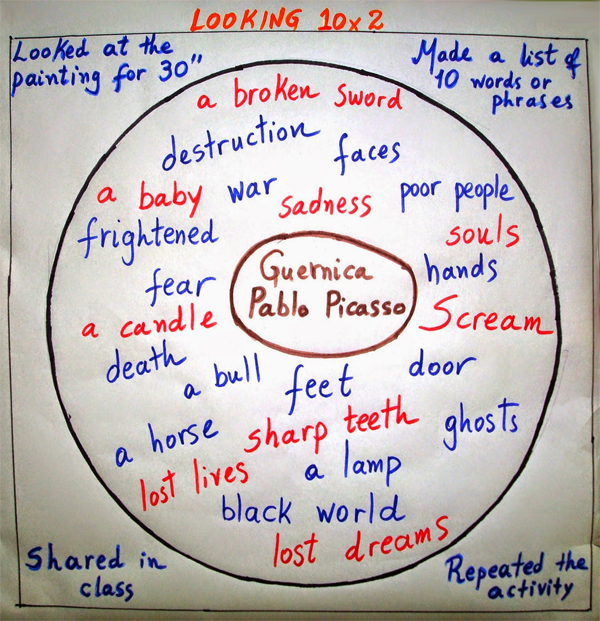 LOOKING 10x2
Looked at the
painting for 30"
Made a list of
10 words or
phrases
a broken sword
destruction
faces
a baby
war
sadness
poor people
frightened
souls
fear
Guernica
Pablo Picasso
hands
a candle
Scream
death
a bull
feet
door
a horse
sharp teeth
ghosts
lost lives
a lamp
black world
lost dreams
Shared in
class
Repeated the
activity